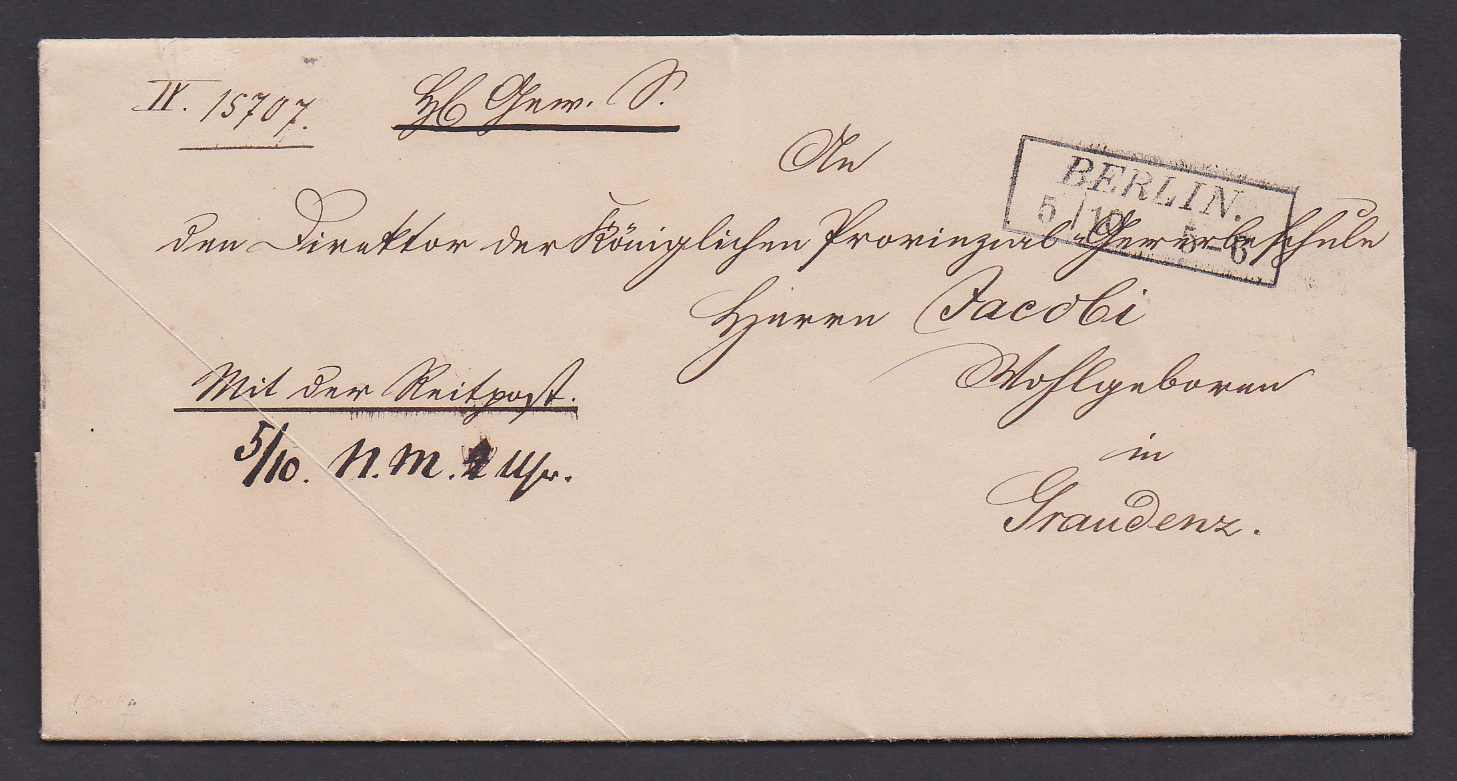 IV. 15707. Hb Gew. S.
An
den Direktor der Königlichen Provinzial-Gewerbeschule
Herrn Jacobi
Wohlgeboren
in
Graudenz.
BERLIN.
5/10 5-6
Mit der Reitpost.
5/10. N. M. Uhr.